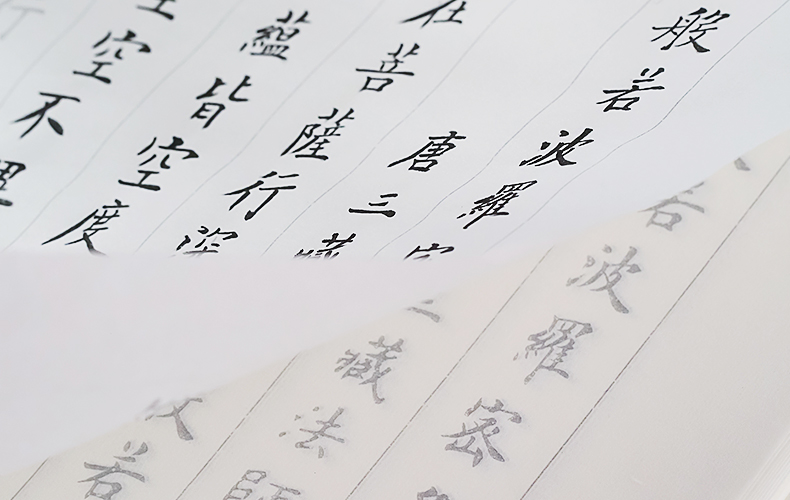 般若波羅密
唐三藏
在菩薩行深
蘊皆空度
空不異
若波羅密
三藏法師
般若